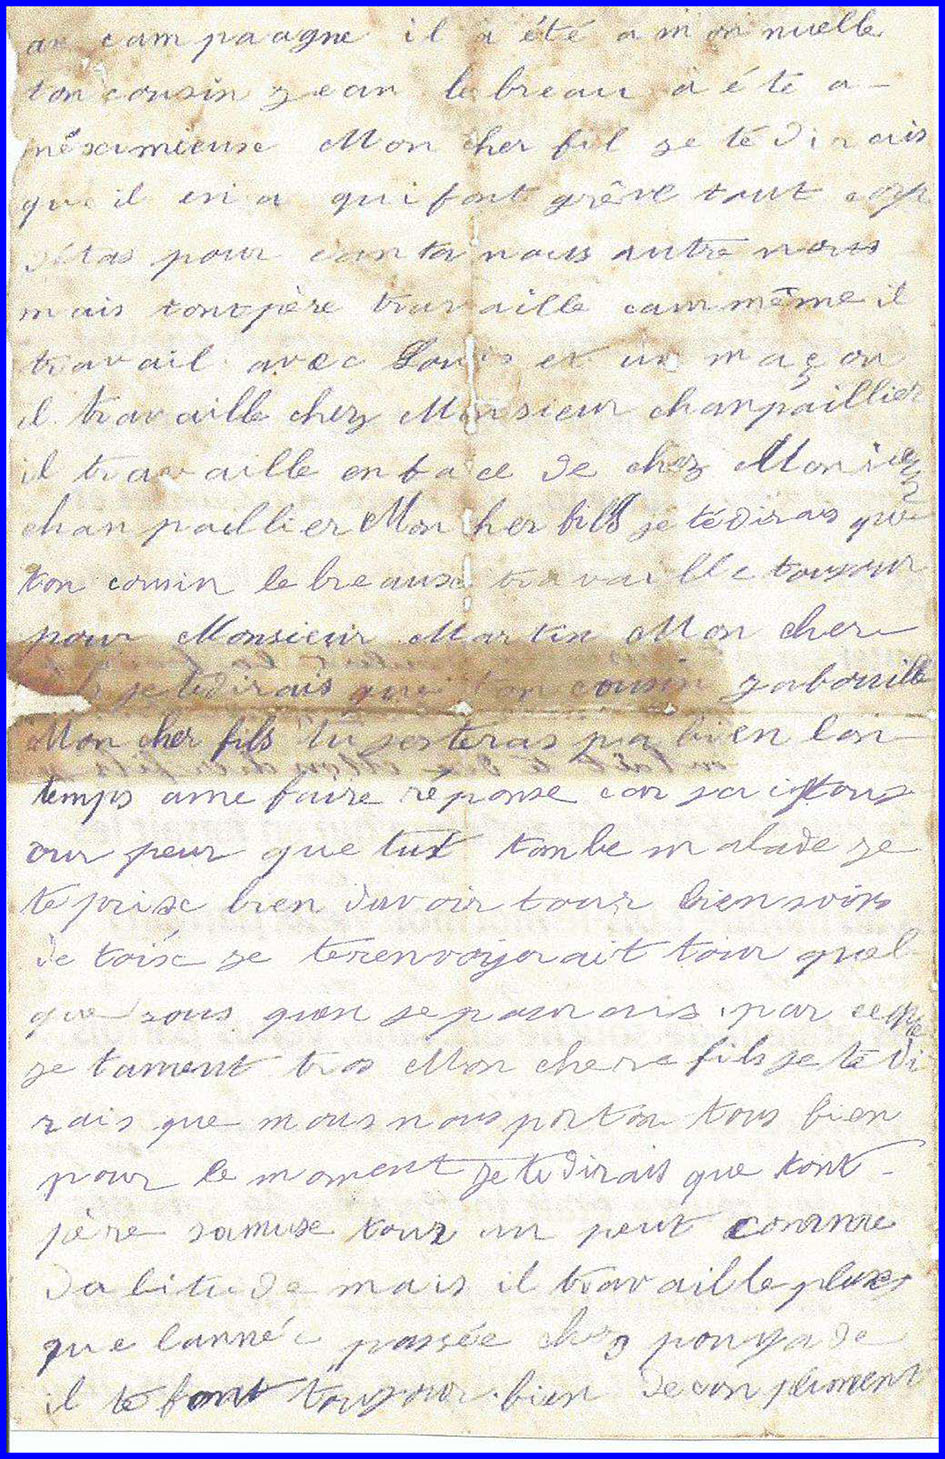 ar campaagne il à été a monnuelle
ton cousin jean lebreau à été a-
néxcimieuse Mon cher fil je té dirais
que il en a qui font grêve tout
détas pour canta nous autre nous
mais tontpère travaille caur même il
travail avec Louis et un maçon
il travaille chez Monsieur chanpaillier
il travaille enface de chez Monsieur
chanpaillier Mon her fils je tédirais que
ton cousin lebreause travaille toujour
pour Monsieur Martin Mon cher
fils je tedirais que ton cousin jabouille
Mon cher fils tu resteras pa bien lon-
temps ame faire réponse car jai tous
our peur que tut tonbe malade je
te prise bien davoir tour bien soins
de toise je terenvoyerait tour quel
que sous quen je pourais par ceque
je taiment tros Mon chere fils je te di
rais que nous nous porton tous bien
pour le moment je tedirais que tont-
père samuse tour un peut comme
dabitude mais il travaille pluse
que lannéé passée chez pouyade
il té font toujour bien de conpliment